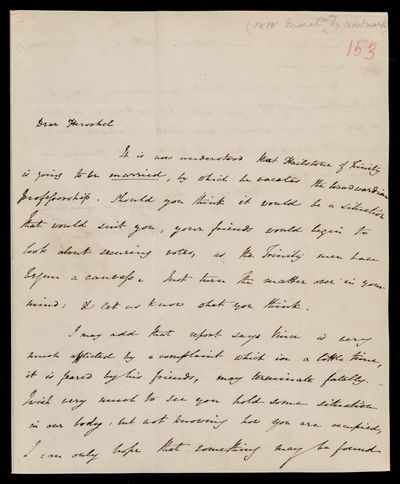 (1818 March by postmark)
153
Dear Herschel
It is now understood that Hailstone of Trinity
is going to be married, by which he vacates the Woodwardian
Professorship. Should you think it would be a situation
that would suit you, your friends would begin to
look about securing votes, as the Trinity men have
begun a canvass. Just turn the matter over in your
mind, & let us know what you think.
I may add that report says Vince is very
much afflicted by a complaint which in a little time,
it is feared by his friends, may terminate fatally.
I wish very much to see you hold some situation
in our body, but not knowing how you are occupied,
I can only hope that something may be found